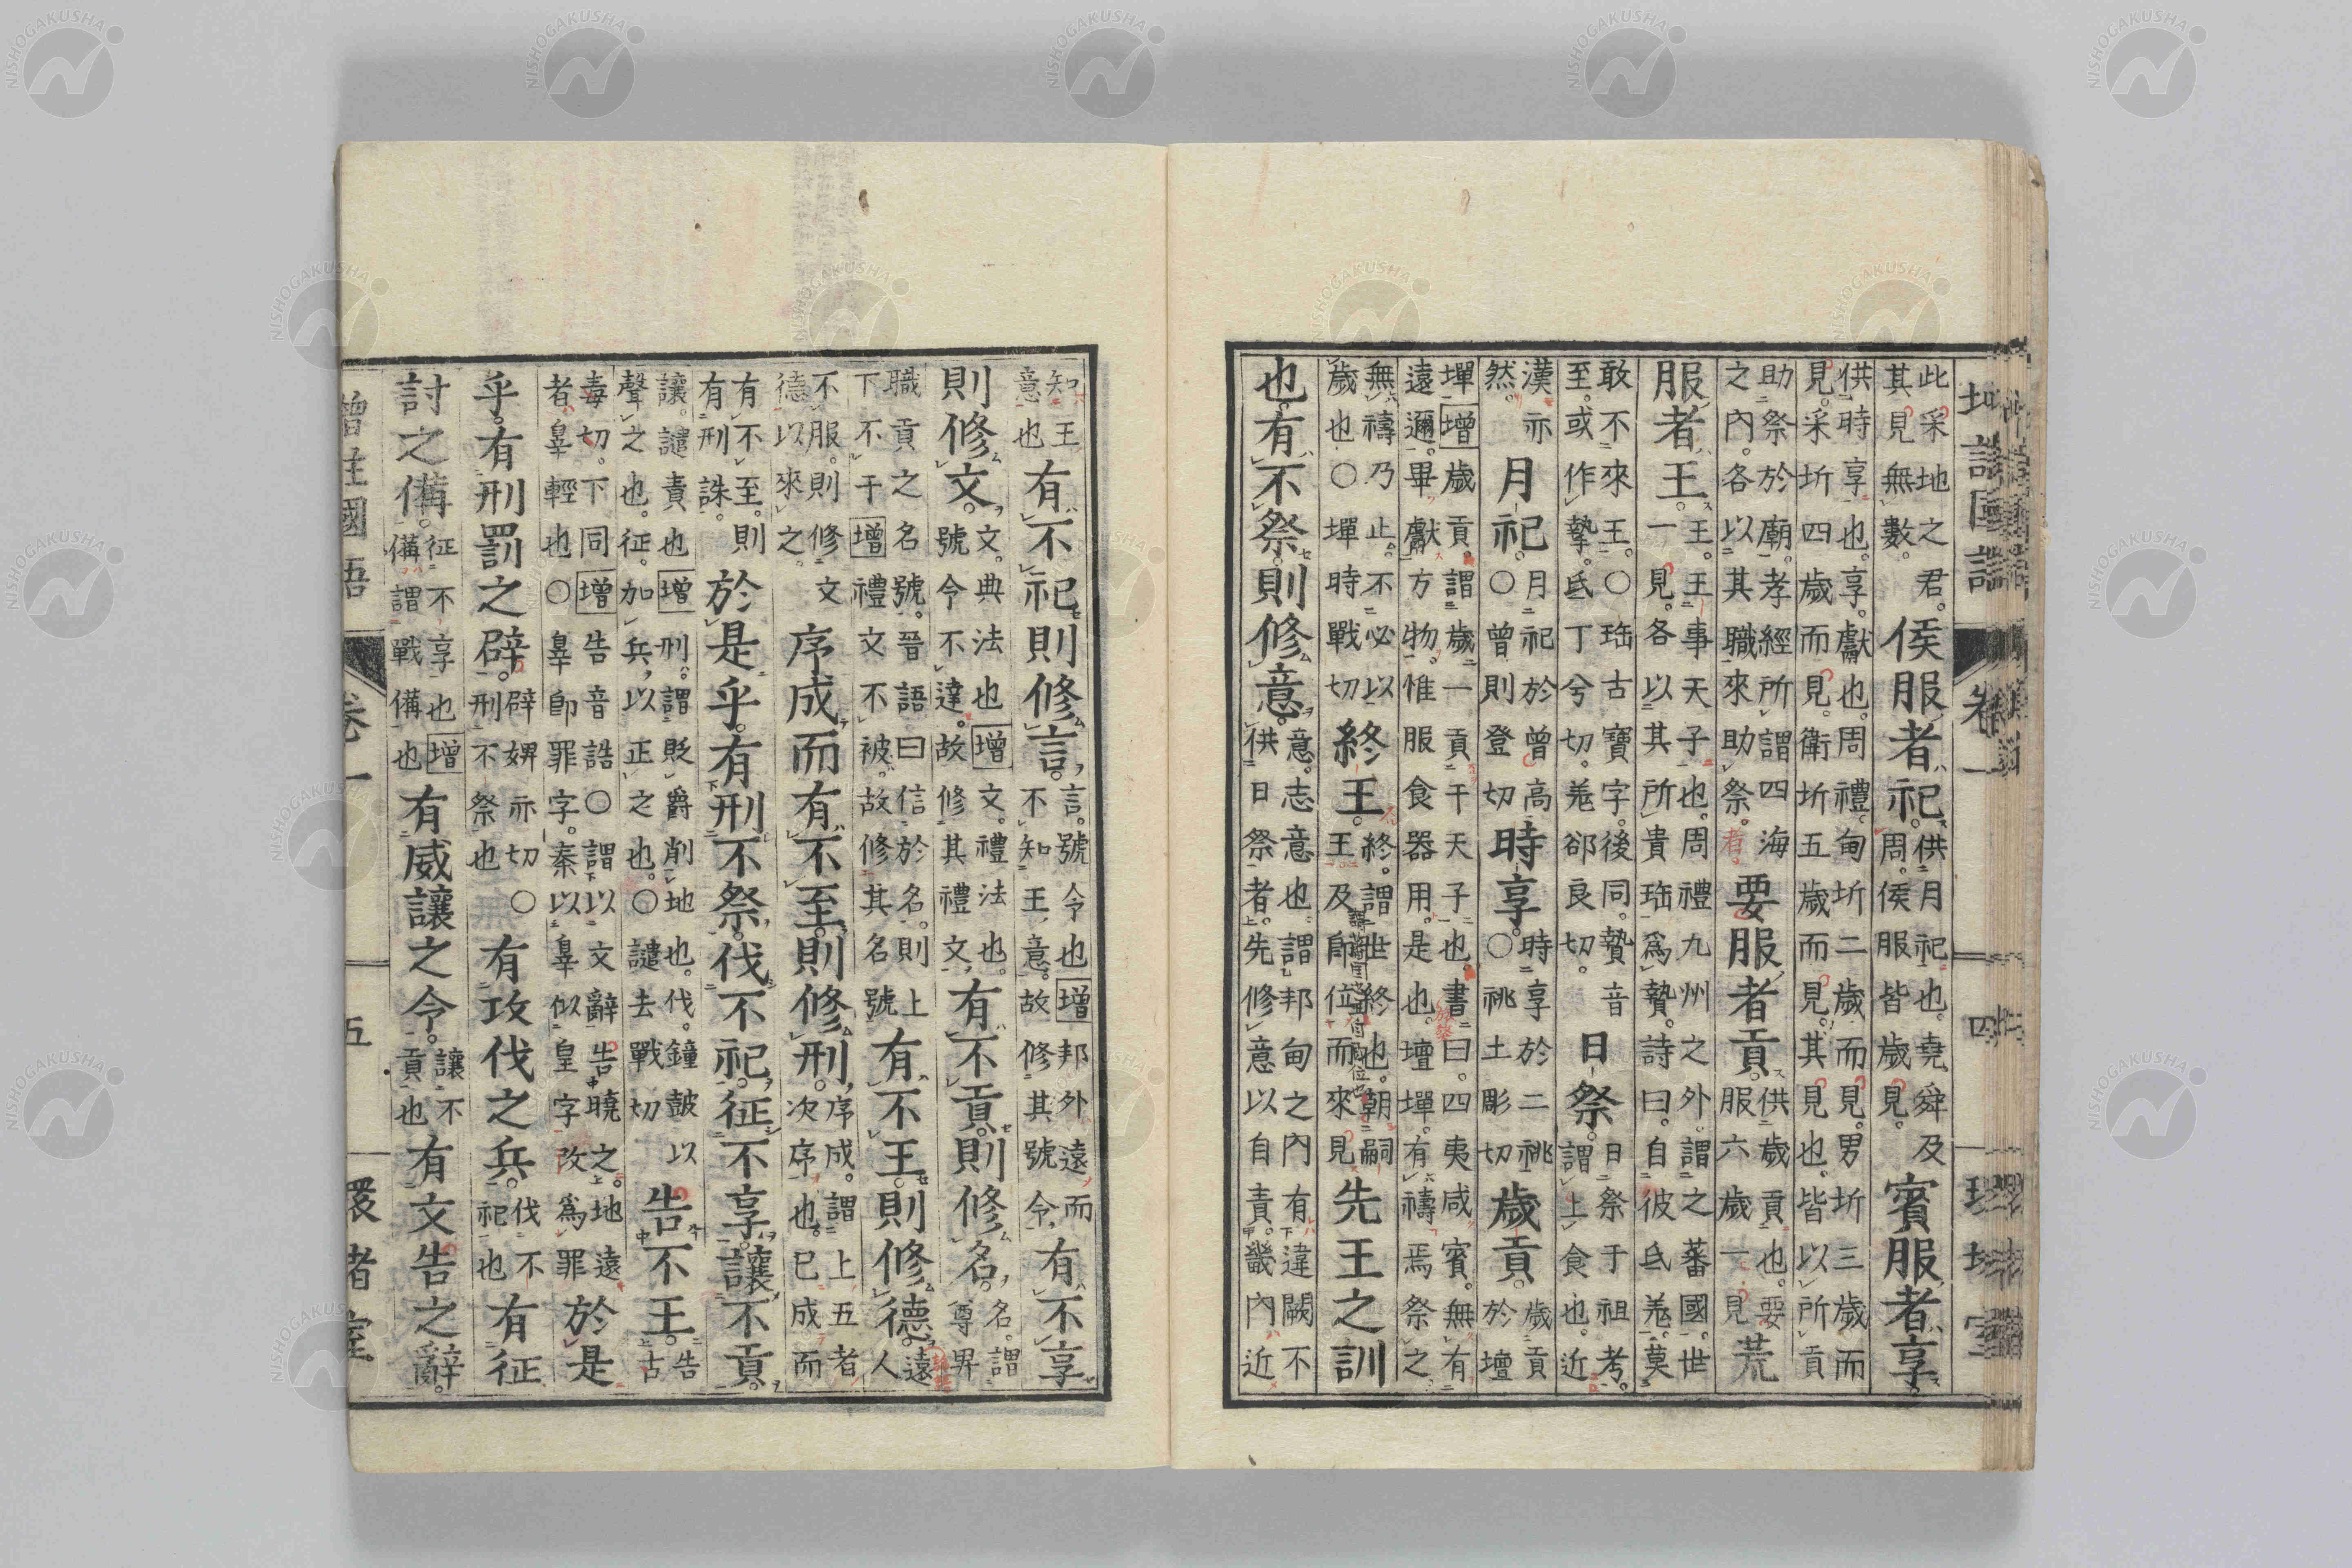 此采地之君。其見無數。侯服者祀。供月祀也。堯舜及周。侯服皆歲見。賓服者享。
供時享也。享。獻也。周禮。甸圻二歲而見。男圻三歲而見。采圻四歲而見。衛圻五歲而見。其見也。皆以所貢
助祭於廟。孝經所謂四海之內。各以其職來助祭。要服者貢。供歲貢也。要服六歲一見荒
服者王。王。王事天子也。周禮九州之外。謂之蕃國。世一見。各以其所貴珤為贄。詩曰。自彼氐羌。莫
敢不來王。○珤古寶字。後同。贄音至。或作摯。氐丁兮切。羌郤良切。日祭。日祭于祖考。謂上食也。近
漢亦然。月祀。月祀於曾高○曾則登切時享。時享於二祧○祧土彫切歲貢。歲貢於壇
墠增歲貢。謂歲一貢于天子也。書曰。四夷咸賓。無有遠邇。畢獻方物。惟服食器用。是也。壇墠。有禱焉祭之
無禱乃止。不必以歲也○墠時戰切終王。終。謂世終也。朝嗣王。及即位而來見先王之訓
也。有不祭。則修意。意。志意也。謂邦甸之內有違闕不供日祭者。先修意以自責。畿內近
卷一
四
知王意也有不祀則修言。言。號令也增邦外遠而不知王意。故修其號令有不享
則修文。文。典法也增文。禮法也。號令不達。故修其禮文有不貢。則修名。名。謂尊卑
職貢之名號。晉語曰信於名。則上下不干增禮文不被。故修其名號有不王。則修德。遠人
不服。則修文德以來之。序成而有不至。則修刑。序成。謂上五者次序也。已成而
有不至。則有刑誅。於是乎。有刑不祭。伐不祀。征不享。讓不貢。
讓。譴責也增刑。謂貶爵削地也。伐。鐘鼓以聲之也。征。加兵以正之也。○譴去戰切告不王。告古
毒切。下同增告音誥○謂以文辭告曉之。地遠者辠輕也○辠即罪字。秦以辠似皇字改為罪於是
乎。有刑罰之辟。辟婢亦切○刑不祭也有攻伐之兵。伐不祀也有征
討之備。征不享也增備謂戰備也有威讓之令。讓不貢也有文告之辭。
增註國語
卷一
五
環堵室